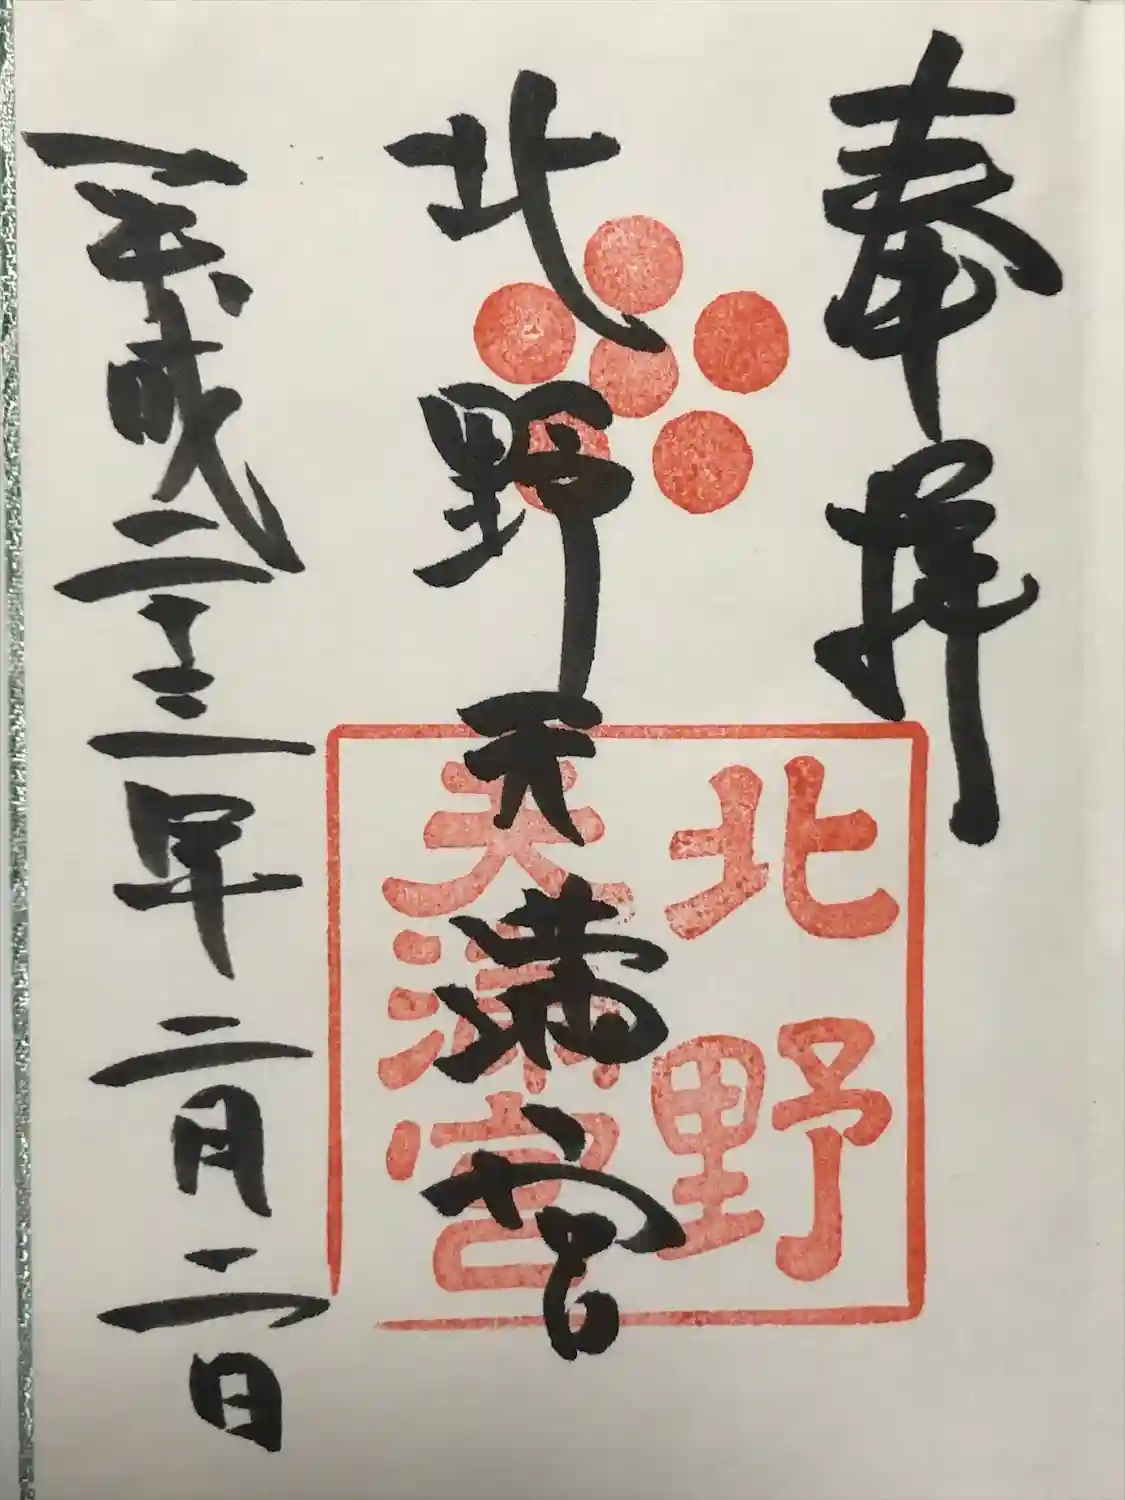 奉拝
北野天満宮
北野
天満宮
平成二 年二月二日